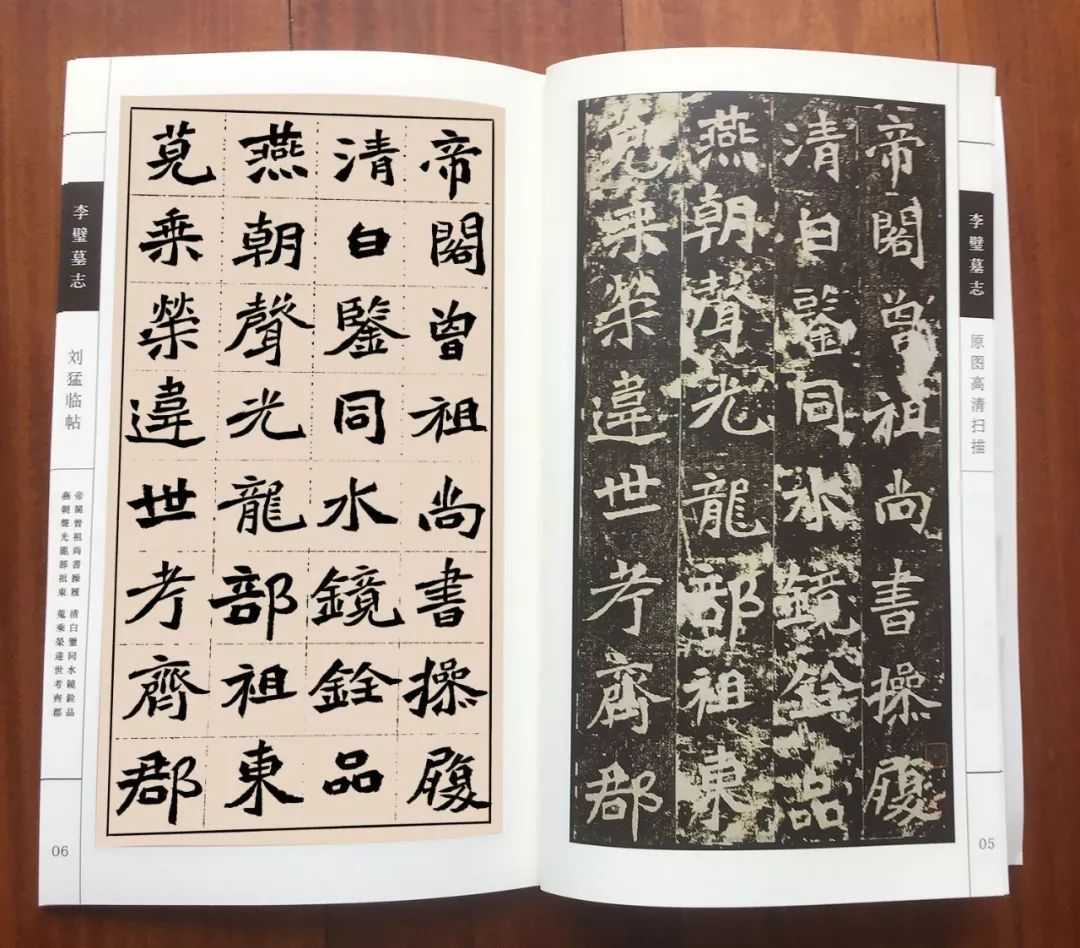 李璧墓志
原图高清扫描
05
帝閣曾祖尚書操履
清白鑒同水鏡銓品
燕朝聲光龍部祖東
蒐乘榮違世考齊郡
帝閣曾祖尚書操履
清白鑒同水鏡銓品
燕朝聲光龍部祖東
蒐乘榮違世考齊郡
李璧墓志
刘猛临帖
帝閣曾祖尚書操履 清白鑒同水鏡銓品
燕朝聲光龍部祖東 蒐乘榮違世考齊郡
06